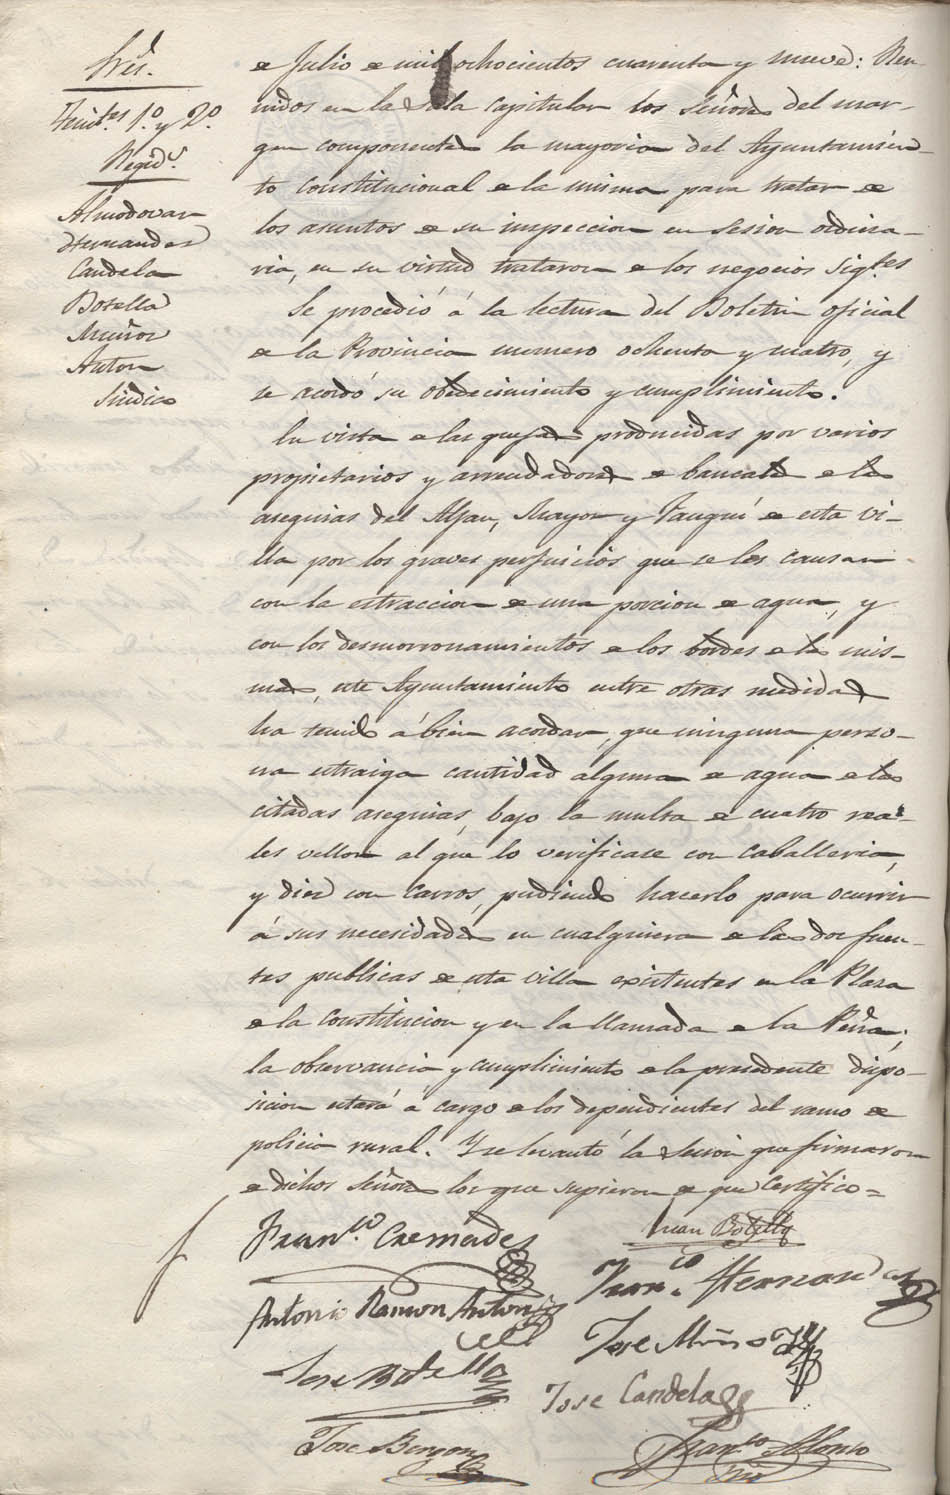 Sres.
Tenites. 1.º y 2.º
Regids.
Almodovar
Hernandez
Candela
Botella
Muñoz
Anton
Sindico
de Julio de mil ochocientos cuarenta y nueve: Reu-
nidos en la Sala capitular los Señores del mar-
gen componentes la mayoria del Ayuntamien-
to constitucional de la misma para tratar de
los asuntos de su inspeccion en sesion ordina-
ria, en su virtud trataron de los negocios sigtes
Se procedió á la lectura del Boletin oficial
de la Provincia numero ochenta y cuatro, y
se acordó su obedecimiento y cumplimiento.
En vista de las quejas producidas por varios
propietarios y arrendadores de bancales de las
asequias del Aljau, Mayor y Fauquí de esta vi-
lla por los graves perjuicios que se les causan
con la estraccion de una porcion de agua, y
con los desmorronamientos de los bordes de las mis-
mas, este Ayuntamiento entre otras medidas
ha tenido á bien acordar, que ninguna perso-
na estraiga cantidad alguna de agua de las
citadas asequias, bajo la multa de cuatro rea-
les vellon al que lo verificase con caballeria,
y diez con carros, pudiendo hacerlo para ocurrir
á sus necesidades en cualquiera de las dos fuen-
tes publicas de esta villa existentes en la Plaza
de la Constitucion y en la llamada de la Peña;
la observancia y cumplimiento de la precedente dispo-
sicion estará á cargo de los dependientes del ramo de
policia rural. Y se levantó la sesion que firmaron
de dichos Señores los que supieron de que Certifico=
Fran.co Cremades
Juan Botella
Fran.co Hernandez
Antonio Ramon Anton
Jose Muñoz
Jose Botella
Jose Candela
Jose Berson
Fran.co Alonso
Srio